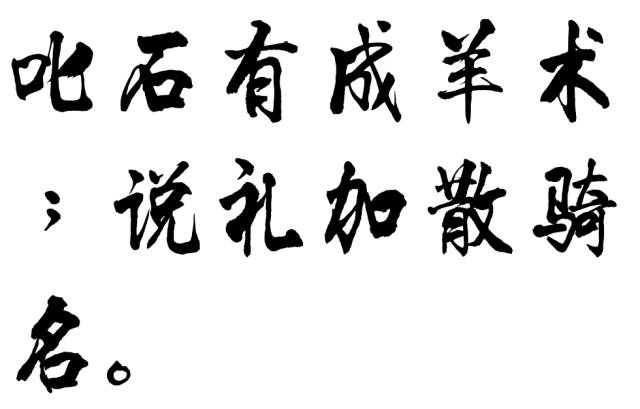 叱石有成羊术
；说礼加散骑
名。